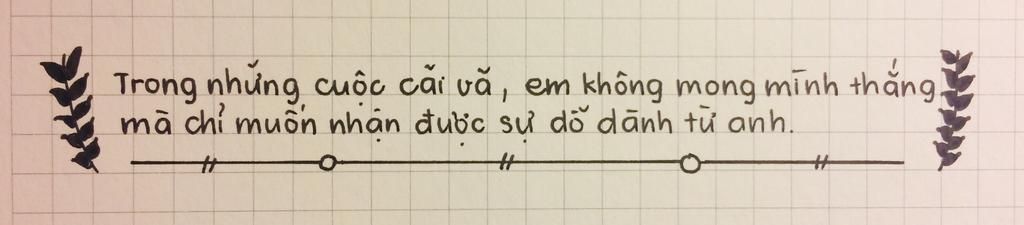 Trong những cuộc cãi vã, em không mong mình thắng
mà chỉ muốn nhận được sự dỗ dành từ anh.